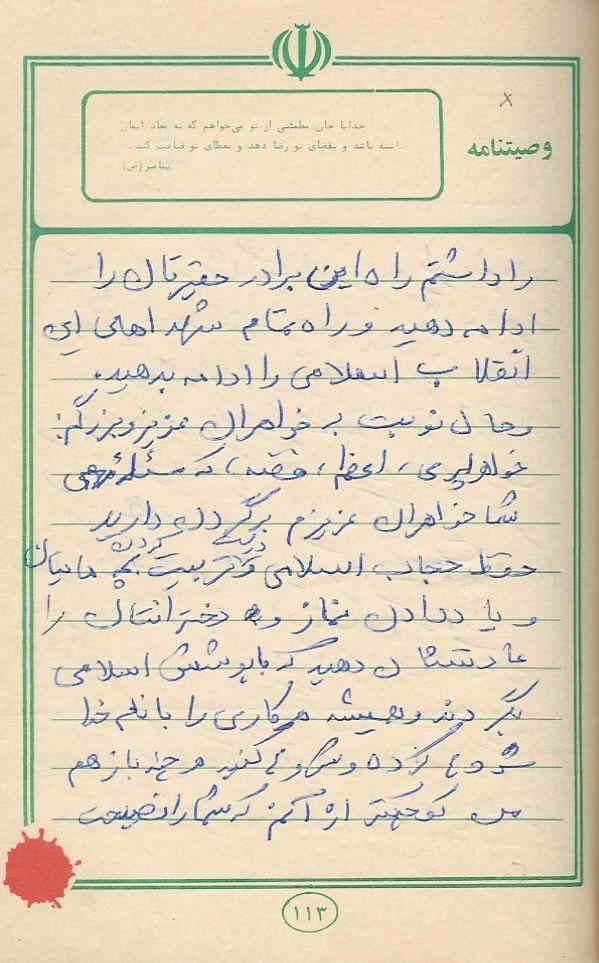 خدایا جان مطمئنی از تو می‌خواهم که به معاد ایمان
داشته باشد و بقضای تو رضا دهد و بعطای تو قناعت کند.
پیامبر (ص)
وصیتنامه
x
را داشتم راه این برادر حقیرتان را
ادامه دهید و راه تمام شهداهای این
انقلاب اسلامی را ادامه بدهید.
و حال نوبت به خواهران عزیز و بزرگم:
خواهر پری، اعظم، که مسئله مهمی
شما خواهران عزیزم بر گردن دارید
حفظ حجاب اسلامی و تربیت کردن بچه هایتان
و یاد دادن نماز و به دخترانتان را
عادتشان دهید که با پوشش اسلامی
بگردند و همیشه هر کاری را با نام خدا
شروع کرده و شروع کنید هر چند باز هم
من کوچکتر از آنم که شما را نصیحت
۱۱۳